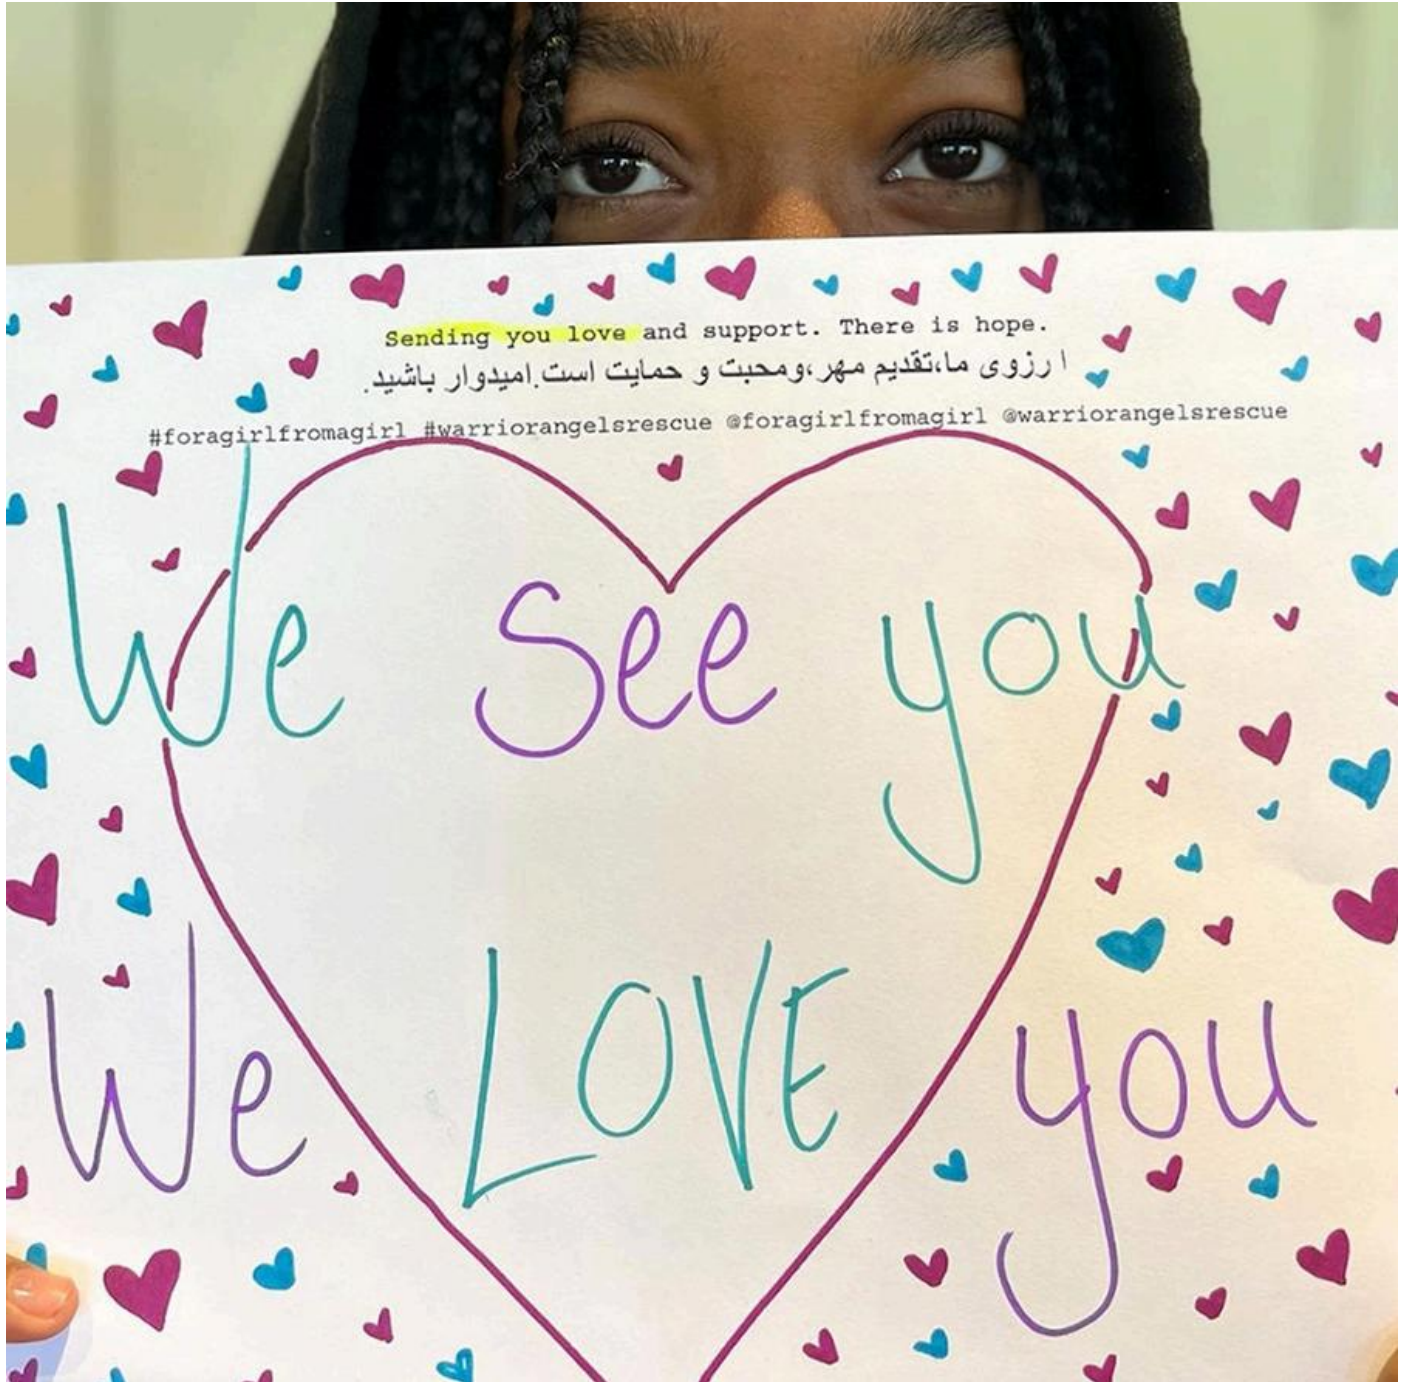 Sending you love and support. There is hope.
ا رزوی ما،تقدیم مهر،ومحبت و حمایت است.امیدوار باشید.
#foragirlfromagirl #warriorangelsrescue @foragirlfromagirl @warriorangelsrescue
We See you
We LOVE you